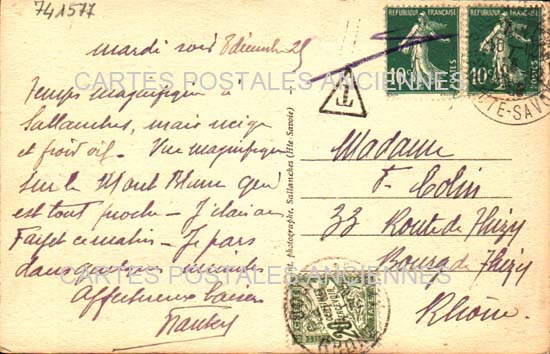 741577
mardi soir 8 décembre 25
Temps magnifique à
Sallanches, mais neige
et froid vif. Vue magnifique
sur le Mont Blanc qui
est tout proche - J'étais au
Fayet ce matin - Je pars
dans quelques minutes
Affectueux baisers
CARTES POSTALES ANCIENNES
CARTES POSTALES ANCIENNES
photographe, Sallanches (Hte-Savoie)
T
REPUBLIQUE FRANÇAISE
10c POSTES
REPUBLIQUE FRANÇAISE
10c POSTES
HTE-SAVOIE
Madame
F. Colin
33 Route de Thizy
Bourg de Thizy
Rhône
20